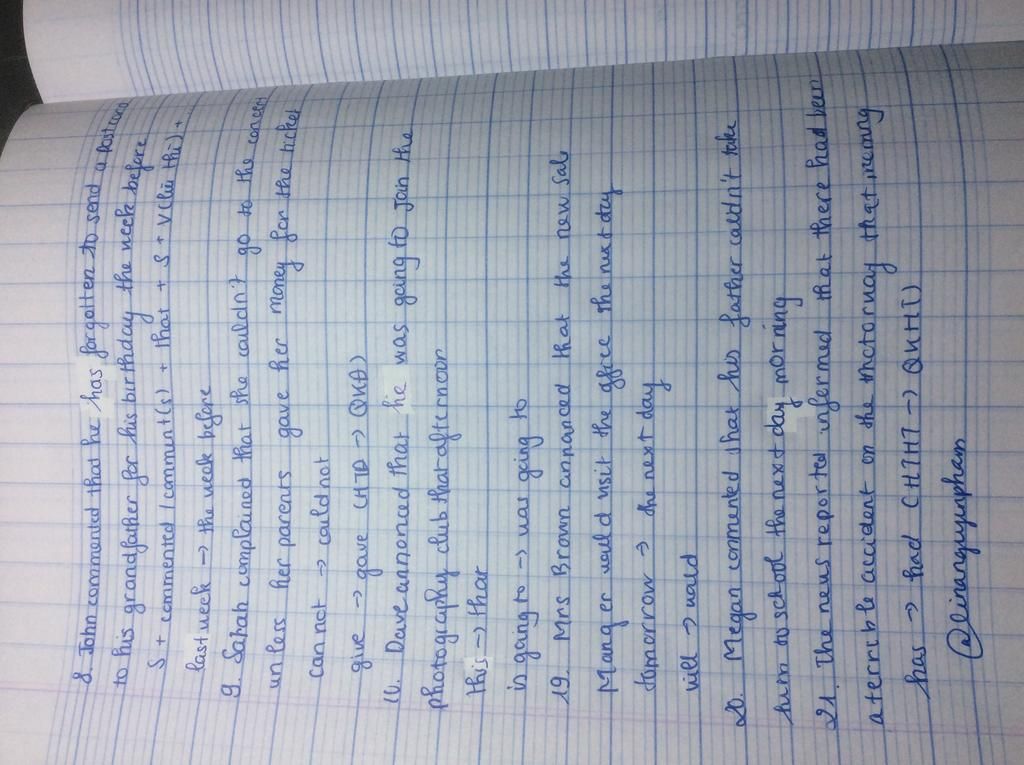 8. John commented that he has forgotten to send a Postcard
to his grandfather for his birthday the week before
S + commented / comment(s) + that + S + V(lùi thì) + ..
last week → the week before
9. Sarah complained that she couldn't go to the concert
unless her parents gave her money for the ticket
can not → could not
give → gave (HTĐ → QKĐ)
10. Dave announced that he was going to join the
photography club that afternoon
this → that
is going to → was going to
19. Mrs Brown annonced that the new Sale
Manager would visit the office the next day
tomorrow → the next day
will → would
20. Megan commented that his father couldn't take
him to school the next day morning
21. The news reported informed that there had been
a terrible accident on the motorway that morning
has → had (HTHT → QKHT)
@linanguyunpham